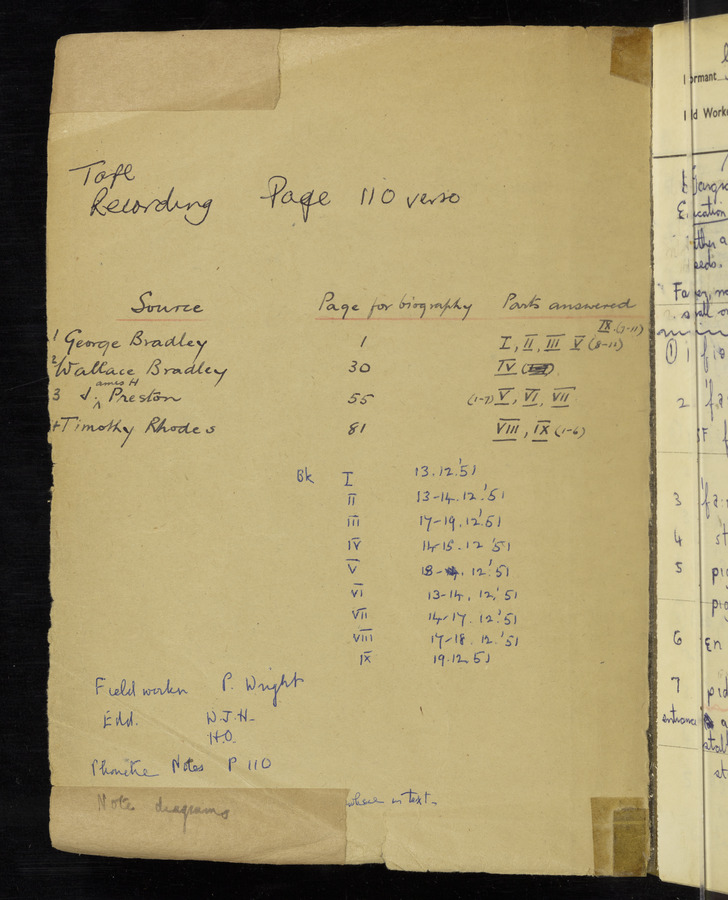 Tape
Recording Page 110 verso
Source Page for biography Parts answered
IX (7-11)
1 George Bradley 1 I, II, III V (8-11)
2 Wallace Bradley 30 IV
3 J. ames H Preston 55 (1-7) V, VI, VII
4 Timothy Rhodes 81 VIII, IX (1-6)
Bk I 13.12.'51
II 13-14.12.'51
III 17-19.12.'51
IV 14-15.12.'51
V 18- .12.'51
VI 13-14.12.'51
VII 14-17.12.'51
VIII 17-18.12.'51
IX 19.12.51
Field worker P. Wright
Edd. W.J.H.
H.O.
Phonetic Notes P 110
Note diagrams where in text.
ormant
ld Work
1
2
3
4
5
6
7
entrance